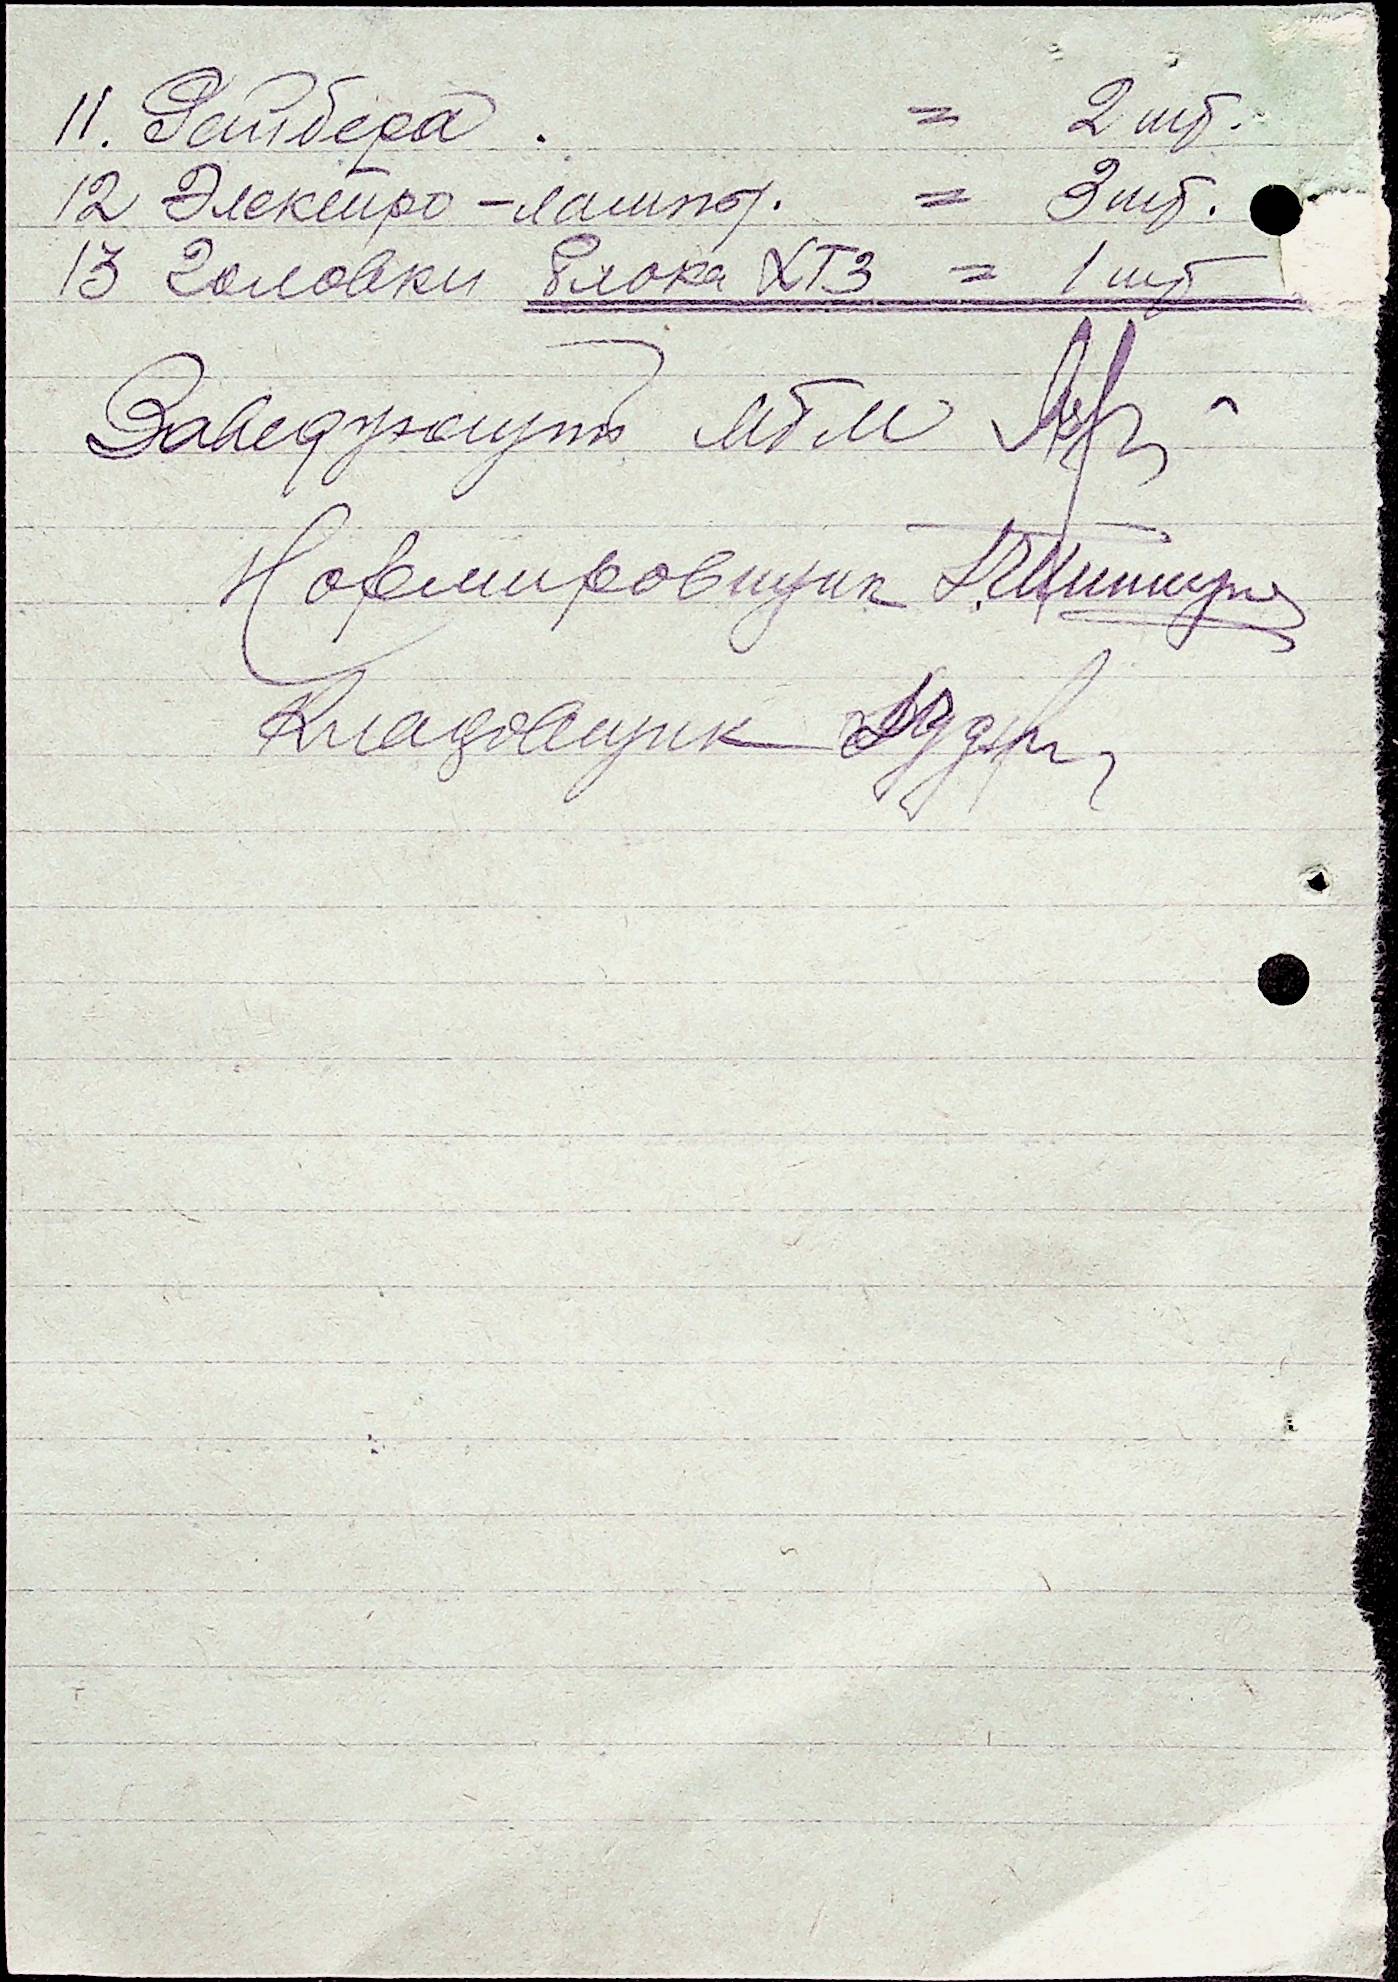 11. Райбера. = 2 шт.
12 Электро-лампы. = 3 шт.
13 Головки блока ХТЗ = 1 шт
Заведующий МТМ
Нормировщик
Кладовщик